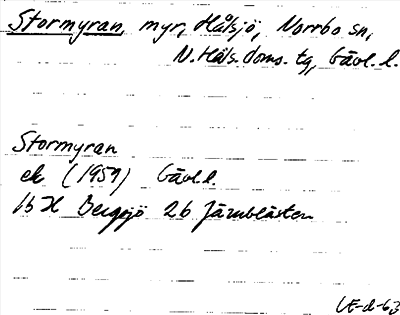 Stormyran, myr, Hålsjö, Norrbo sn,
N. Häls. doms. tg, Gävl. l.
Stormyran
ek (1959) Gävl. l.
16 H Bergsjö 2b Järnblästen